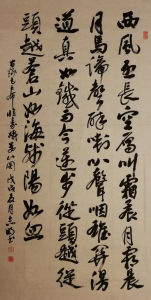 西風烈長空雁叫霜晨月霜晨
月馬蹄聲碎喇叭聲咽雄關漫
道真如鐵而今邁步從頭越從
頭越蒼山如海殘陽如血
毛主席憶秦娥婁山關戊戌夏月書